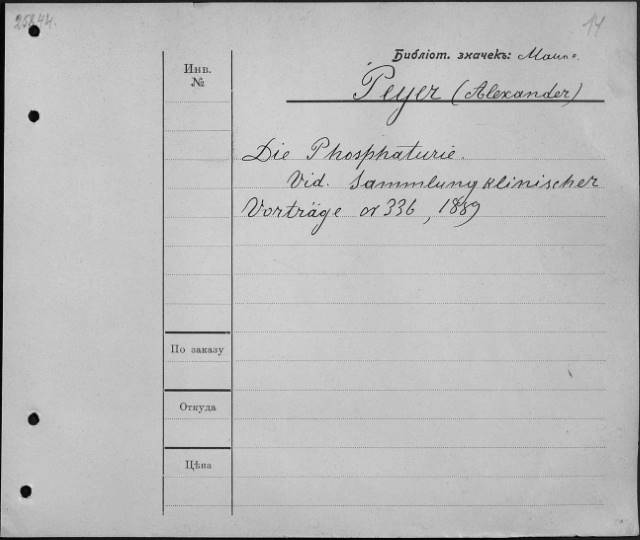 25844.
14
Библіот. значекъ:
Инв.
№
Peyer (Alexander)
Die Phosphaturie.
Vid. Sammlung klinischer
Vorträge № 336, 1889
По заказу
Откуда
Цѣна